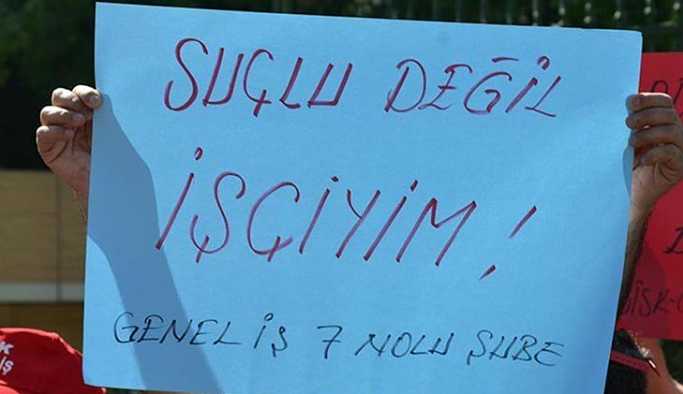 SUÇLU DEĞİL
İŞÇİYİM!
GENEL İŞ 7 NOLU ŞUBE